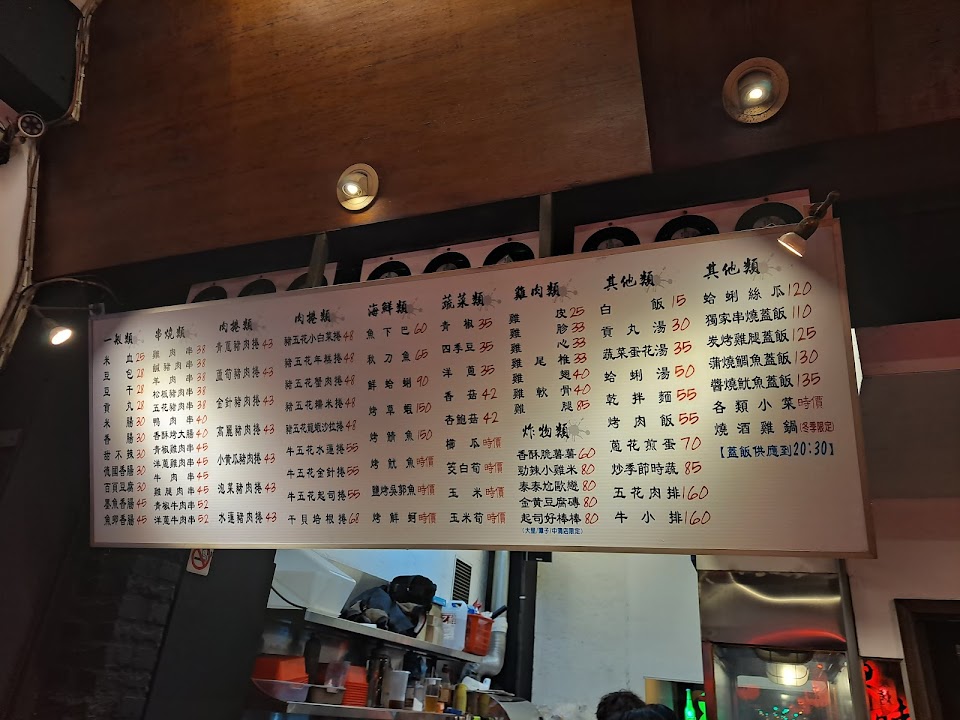 一般類
米血25
豆包28
豆干28
貢丸28
米腸30
香腸30
甜不辣30
桃園香腸30
百頁豆腐30
墨魚香腸45
魚卵香腸45
串燒類
雞肉串38
鹹豬肉串38
羊肉串38
松板豬肉串38
五花豬肉串38
鴨肉串40
香酥烤大腸40
青椒雞肉串45
洋蔥雞肉串45
牛肉串45
雞腿肉串45
青椒牛肉串52
洋蔥牛肉串52
肉捲類
青蔥豬肉捲43
蘆筍豬肉捲43
金針豬肉捲43
高麗豬肉捲43
小黃瓜豬肉捲43
泡菜豬肉捲43
水蓮豬肉捲43
肉捲類
豬五花小白菜捲48
豬五花年糕捲48
豬五花蟹肉捲48
豬五花糯米捲48
豬五花龍蝦沙拉捲48
牛五花水蓮捲55
牛五花金針捲55
牛五花起司捲55
干貝培根捲68
海鮮類
魚下巴60
秋刀魚65
鮮蛤蜊90
烤草蝦150
烤鯖魚150
烤魷魚時價
鹽烤吳郭魚時價
烤鮮蚵時價
蔬菜類
青椒35
四季豆35
洋蔥35
香菇42
杏鮑菇42
櫛瓜時價
茭白筍時價
玉米時價
玉米筍時價
雞肉類
雞皮25
雞胗33
雞心33
雞尾椎33
雞翅40
雞軟骨40
雞腿85
炸物類
香酥脆薯薯60
勁辣小雞米80
泰泰尬歐戀80
金黃豆腐磚80
起司好棒棒80
其他類
白飯15
貢丸湯30
蔬菜蛋花湯35
蛤蜊湯50
乾拌麵55
烤肉飯55
蔥花煎蛋70
炒季節時蔬85
五花肉排160
牛小排160
其他類
蛤蜊絲瓜120
獨家串燒蓋飯110
炭烤雞腿蓋飯125
蒲燒鯛魚蓋飯130
醬燒魷魚蓋飯135
各類小菜時價
燒酒雞鍋(冬季限定)
【蓋飯供應到20:30】